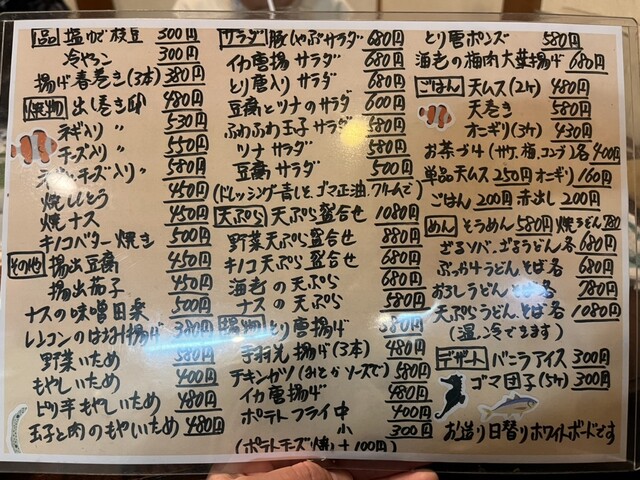 一品 塩ゆで枝豆 300円
冷ヤッコ 300円
揚げ春巻き(3本) 380円
焼物 出し巻き卵 480円
ネギ入り 〃 530円
チーズ入り 〃 550円
チーズ入り 〃 580円
焼ししとう 450円
焼ナス 450円
キノコバター焼き 500円
その他 揚出豆腐 450円
揚出茄子 450円
ナスの味噌田楽 500円
レンコンのはさみ揚げ 380円
野菜いため 580円
もやしいため 400円
ピリ辛もやしいため 480円
玉子と肉のもやしいため 480円
サラダ 豚しゃぶサラダ 680円
イカ唐揚サラダ 680円
とり唐入りサラダ 680円
豆腐とツナのサラダ 600円
ふわふわ玉子サラダ 580円
ツナサラダ 580円
豆腐サラダ 500円
(ドレッシング青しそ、ゴマ正油、クリームで)
天ぷら 天ぷら盛合せ 1080円
野菜天ぷら盛合せ 880円
キノコ天ぷら盛合せ 680円
海老の天ぷら 680円
ナスの天ぷら 580円
揚物 とり唐揚げ 580円
手羽先揚げ(3本) 480円
チキンカツ(おとがソースで) 580円
イカ唐揚げ 480円
ポテトフライ 中 400円
小 300円
(ポテトチーズ焼 +100円)
とり唐ポンズ 580円
海老の梅肉大葉揚げ 680円
ごはん 天ムス(2ケ) 480円
天巻き 580円
オニギリ(3ケ) 430円
お茶づけ(サケ、梅、コンブ)各400円
単品天ムス250円 オニギリ160円
ごはん 200円 赤出し 200円
めん そうめん 580円 焼うどん 780
ざるソバ、ざるうどん各 680円
ぶっかけうどんそば各 680円
おろしうどんそば各 780円
天ぷらうどんそば各 1080円
(温、冷できます)
デザート バニラアイス 300円
ゴマ団子(5ケ) 300円
お造り日替りホワイトボードです